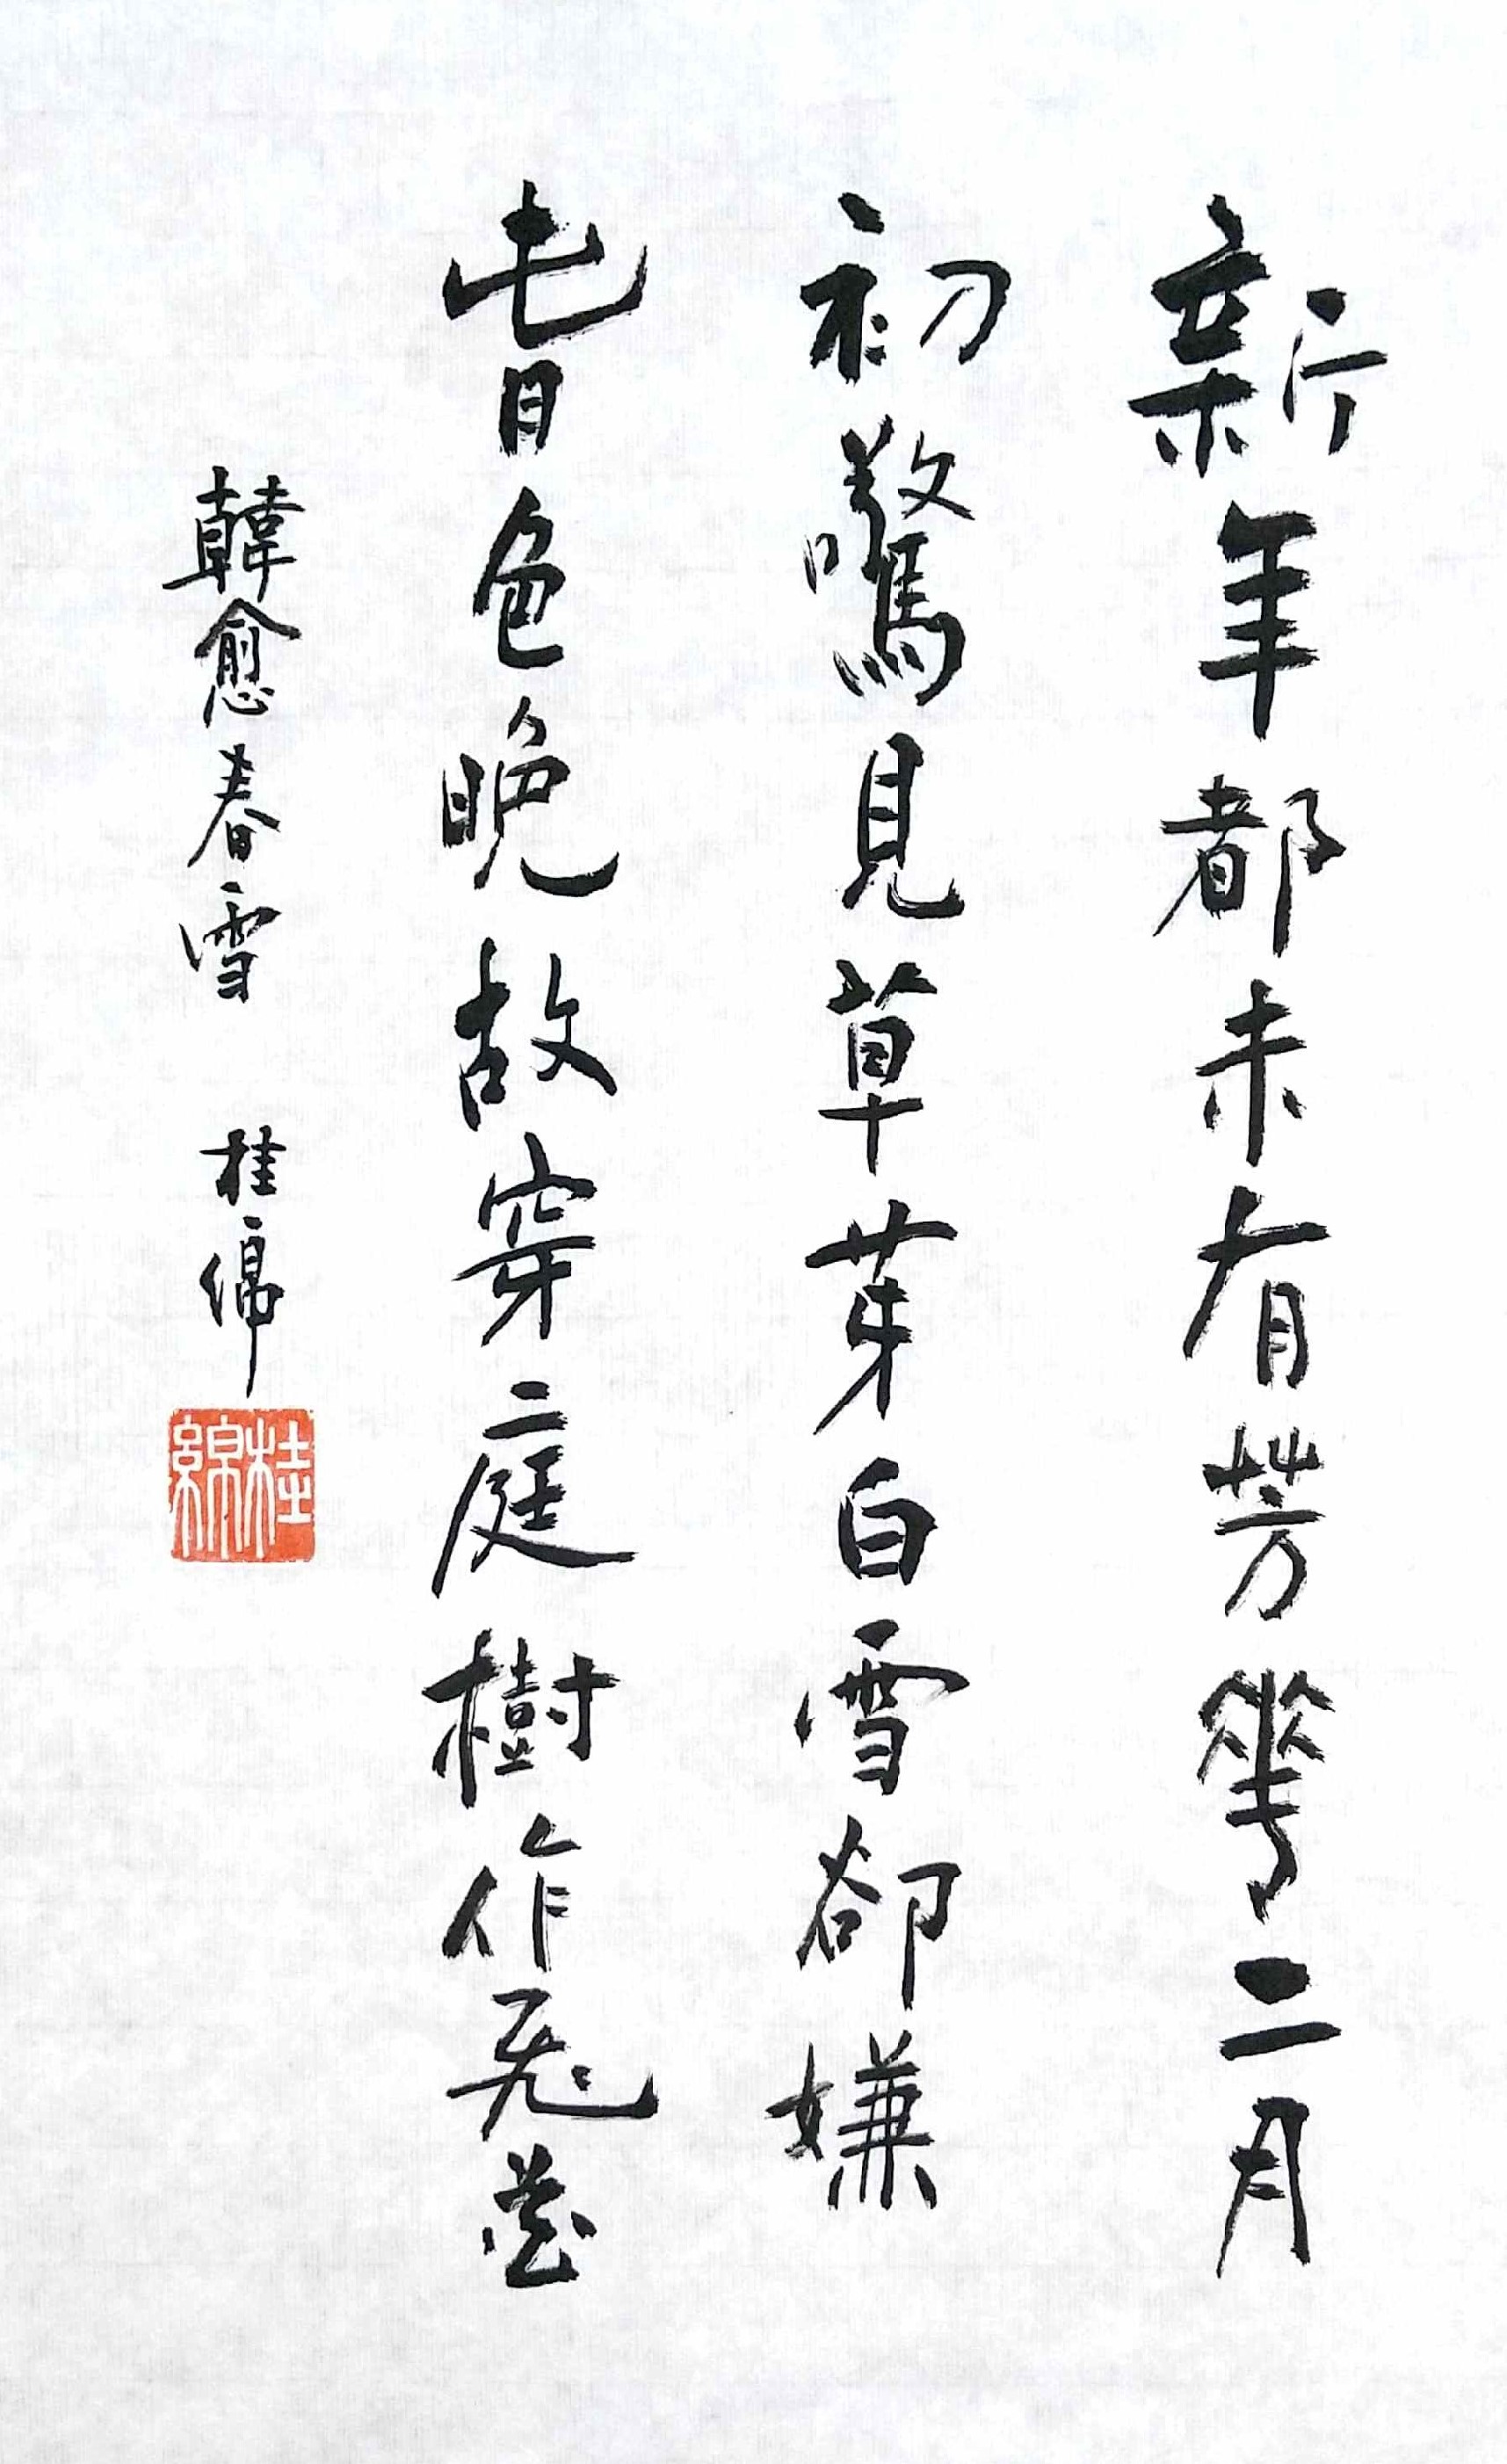 新年都未有芳華二月
初驚見草芽白雪卻嫌
旾色晚故穿庭樹作飛花
韓愈春雪 桂綿
桂綿